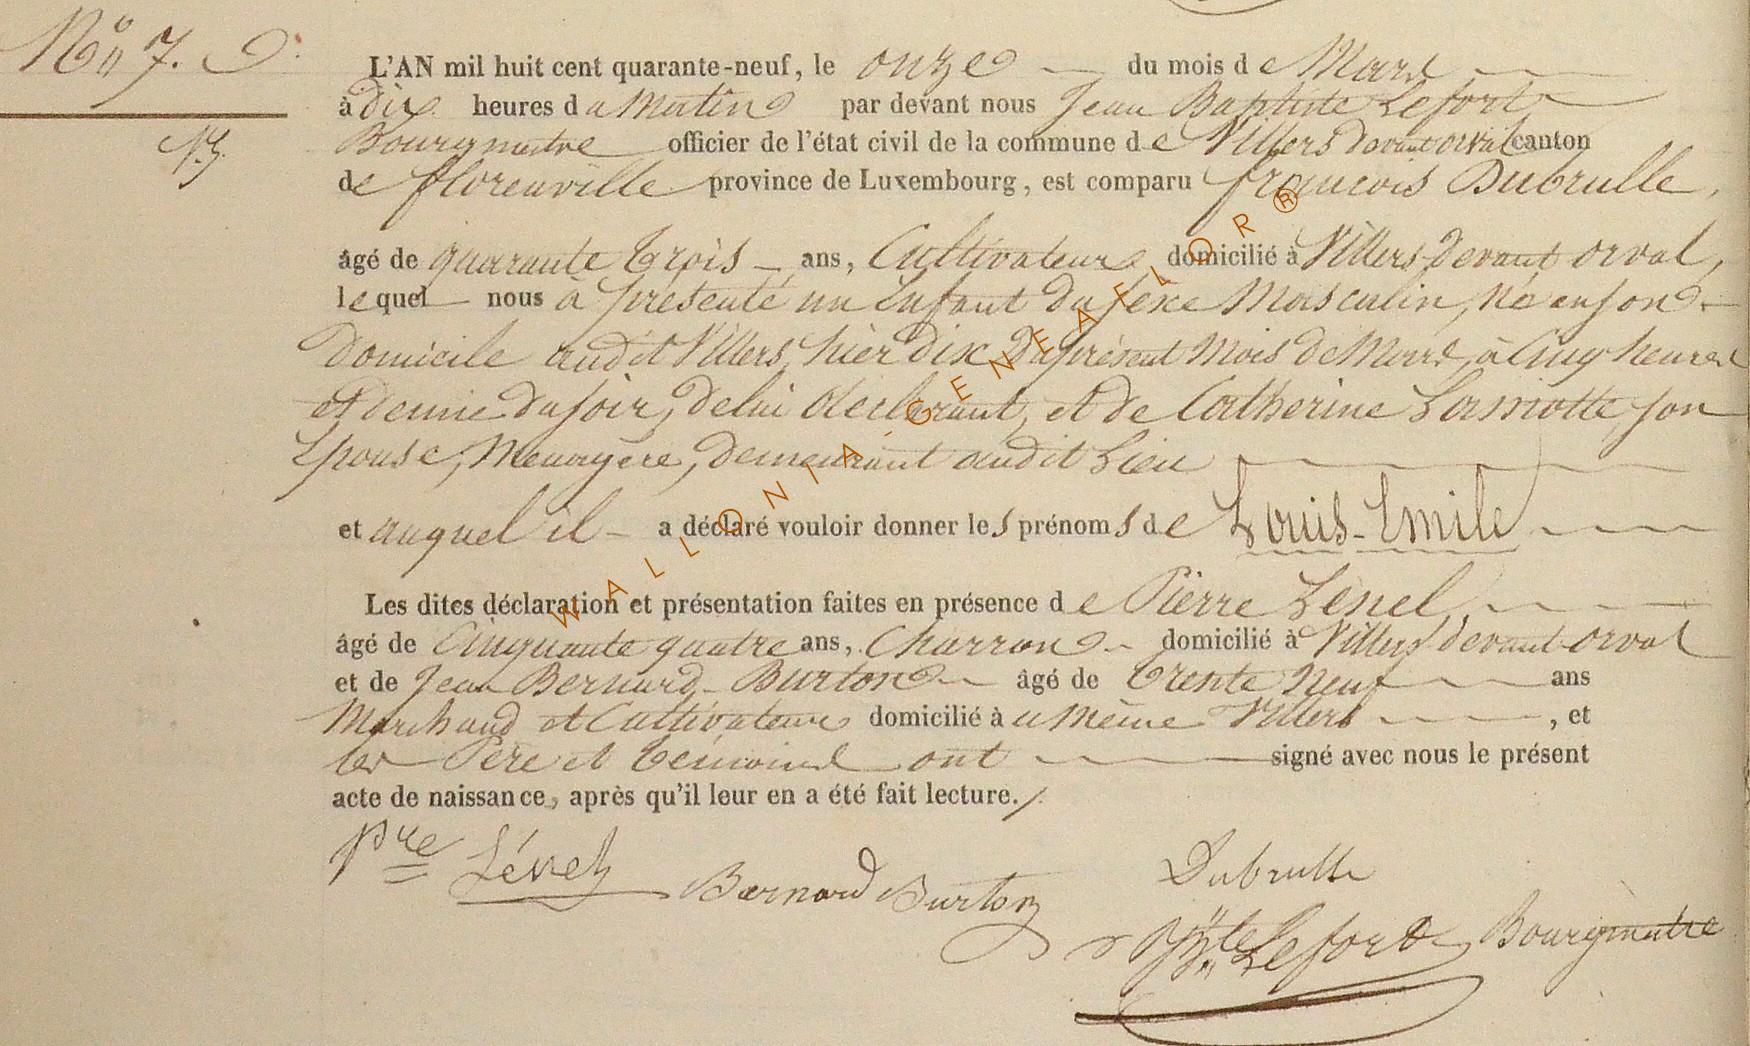 N° 7.
L'AN mil huit cent quarante-neuf, le onze du mois de Mars
à dix heures du Matin par devant nous Jean Baptiste Lefort
Bourgmestre officier de l'état civil de la commune de Villers devant orval canton
de florenville province de Luxembourg, est comparu françois Dubrulle,
âgé de quarante trois ans, Cultivateur domicilié à Villers devant orval,
lequel nous à présenté un Enfant du sexe Masculin, né en son
Domicile audit Villers, hier dix du présent Mois de Mars, à Cinq heures
et demie du soir, de lui déclarant, et de Catherine Lamotte son
Epouse, Menagere, demeurant audit Lieu
et auquel il a déclaré vouloir donner les prénoms de Louis-Emile
Les dites déclaration et présentation faites en présence de Pierre Lenel
âgé de Cinquante quatre ans, Charron domicilié à Villers devant orval
et de Jean Bernard Burton âgé de trente Neuf ans
Marchand et Cultivateur domicilié à u Même Villers, et
les Père et temoins ont signé avec nous le présent
acte de naissance, après qu'il leur en a été fait lecture./.
Pre Bernard Burton Dubrulle
Lefort Bourgmestre
WALLONIA-GENEAFLOR®